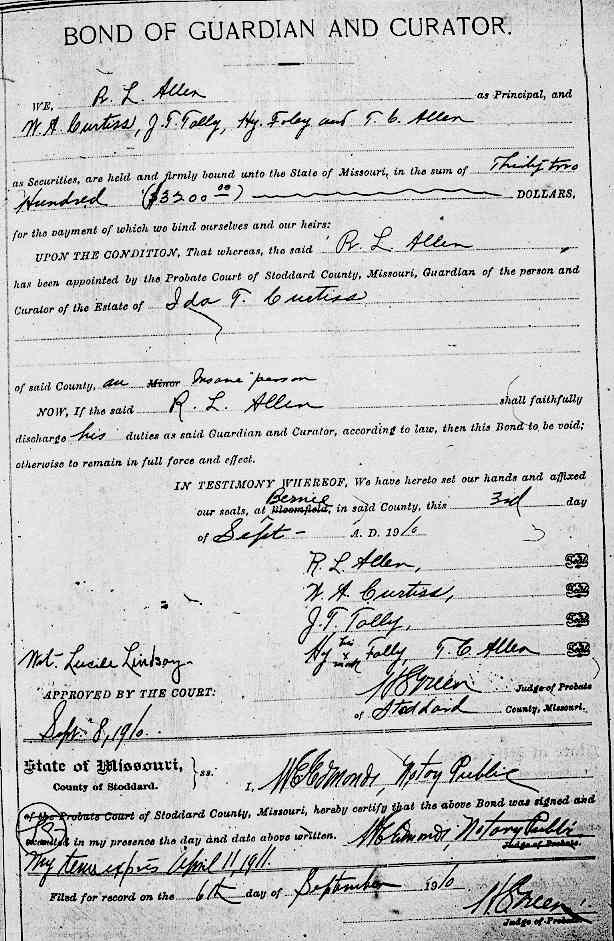 BOND OF GUARDIAN AND CURATOR.
WE, R. L. Allen as Principal, and
W. A. Curtiss, J. T. Tally, Hy. Foley and T. C. Allen
as Securities, are held and firmly bound unto the State of Missouri, in the sum of Thirty two
Hundred ($3200 00) DOLLARS,
for the payment of which we bind ourselves and our heirs:
UPON THE CONDITION, That whereas, the said R. L. Allen
has been appointed by the Probate Court of Stoddard County, Missouri, Guardian of the person and
Curator of the Estate of Ida T. Curtiss
of said County, an Minor Insane person
NOW, If the said R. L. Allen shall faithfully
discharge his duties as said Guardian and Curator, according to law, then this Bond to be void;
otherwise to remain in full force and effect.
IN TESTIMONY WHEREOF, We have hereto set our hands and affixed
Bernie
our seals, at Bloomfield, in said County, this 3rd day
of Sept - A. D. 1910
R. L. Allen, Seal
W. A. Curtiss, Seal
J. T. Tally, Seal
Hy his x mark Folly, T. C. Allen Seal
Wit. Lucile Lindsay.
Green Judge of Probate
APPROVED BY THE COURT:
of Stoddard County, Missouri.
Sept. 8, 1910.
State of Missouri,
County of Stoddard. } ss.
I, W C Edmonds, Notoy Public
of the Probate Court of Stoddard County, Missouri, hereby certify that the above Bond was signed and
executed in my presence the day and date above written. W C Edmonds Notary Public
Judge of Probate.
My term expires April 11, 1911.
Filed for record on the 6th day of September 1910
Green
Judge of Probate.